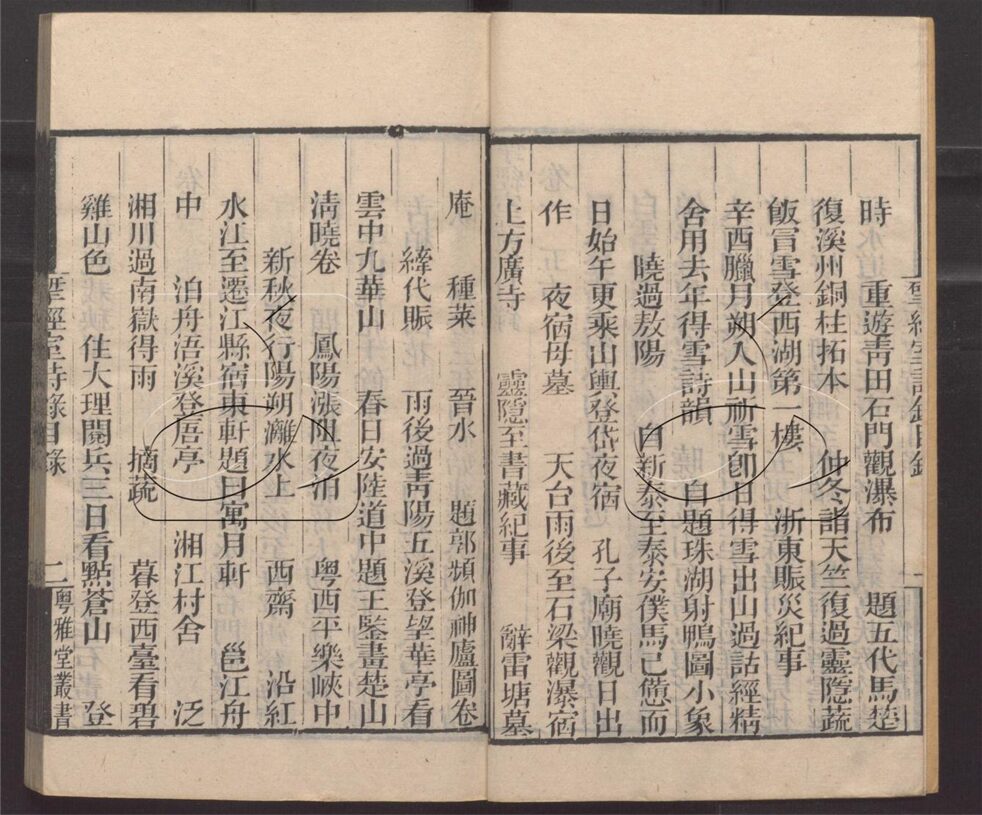 時　重遊靑田石門觀瀑布　題五代馬楚
復溪州銅柱拓本　仲冬詣天竺復過靈隱蔬
飯冒雪登西湖第一樓　浙東賑災紀事
辛酉臘月朔入山祈雪卽日得雪出山過詁經精
舍用去年得雪詩韻　自題珠湖射鴨圖小象
曉過敖陽　自新泰至泰安僕馬已憊而
日始午更乘山輿登岱夜宿　孔子廟曉觀日出
作　夜宿母墓　天台雨後至石梁觀瀑宿
上方廣寺　靈隱至書藏紀事　辭雷塘墓
庵　種菜　晉水　題郭頻伽神廬圖卷
縴代賑　雨後過靑陽五溪登望華亭看
雲中九華山　春日安陸道中題王鑒畫楚山
淸曉卷　鳳陽漲阻夜泊　粵西平樂峽中
新秋夜行陽朔灕水上　西齋　沿紅
水江至遷江縣宿東軒題曰寓月軒　邕江舟
中　泊舟浯溪登㾿亭　湘江村舍　泛
湘川過南嶽得雨　摘蔬　暮登西臺看碧
雞山色　住大理閱兵三日看點蒼山　登
揅經室詩錄目錄　二　粵雅堂叢書